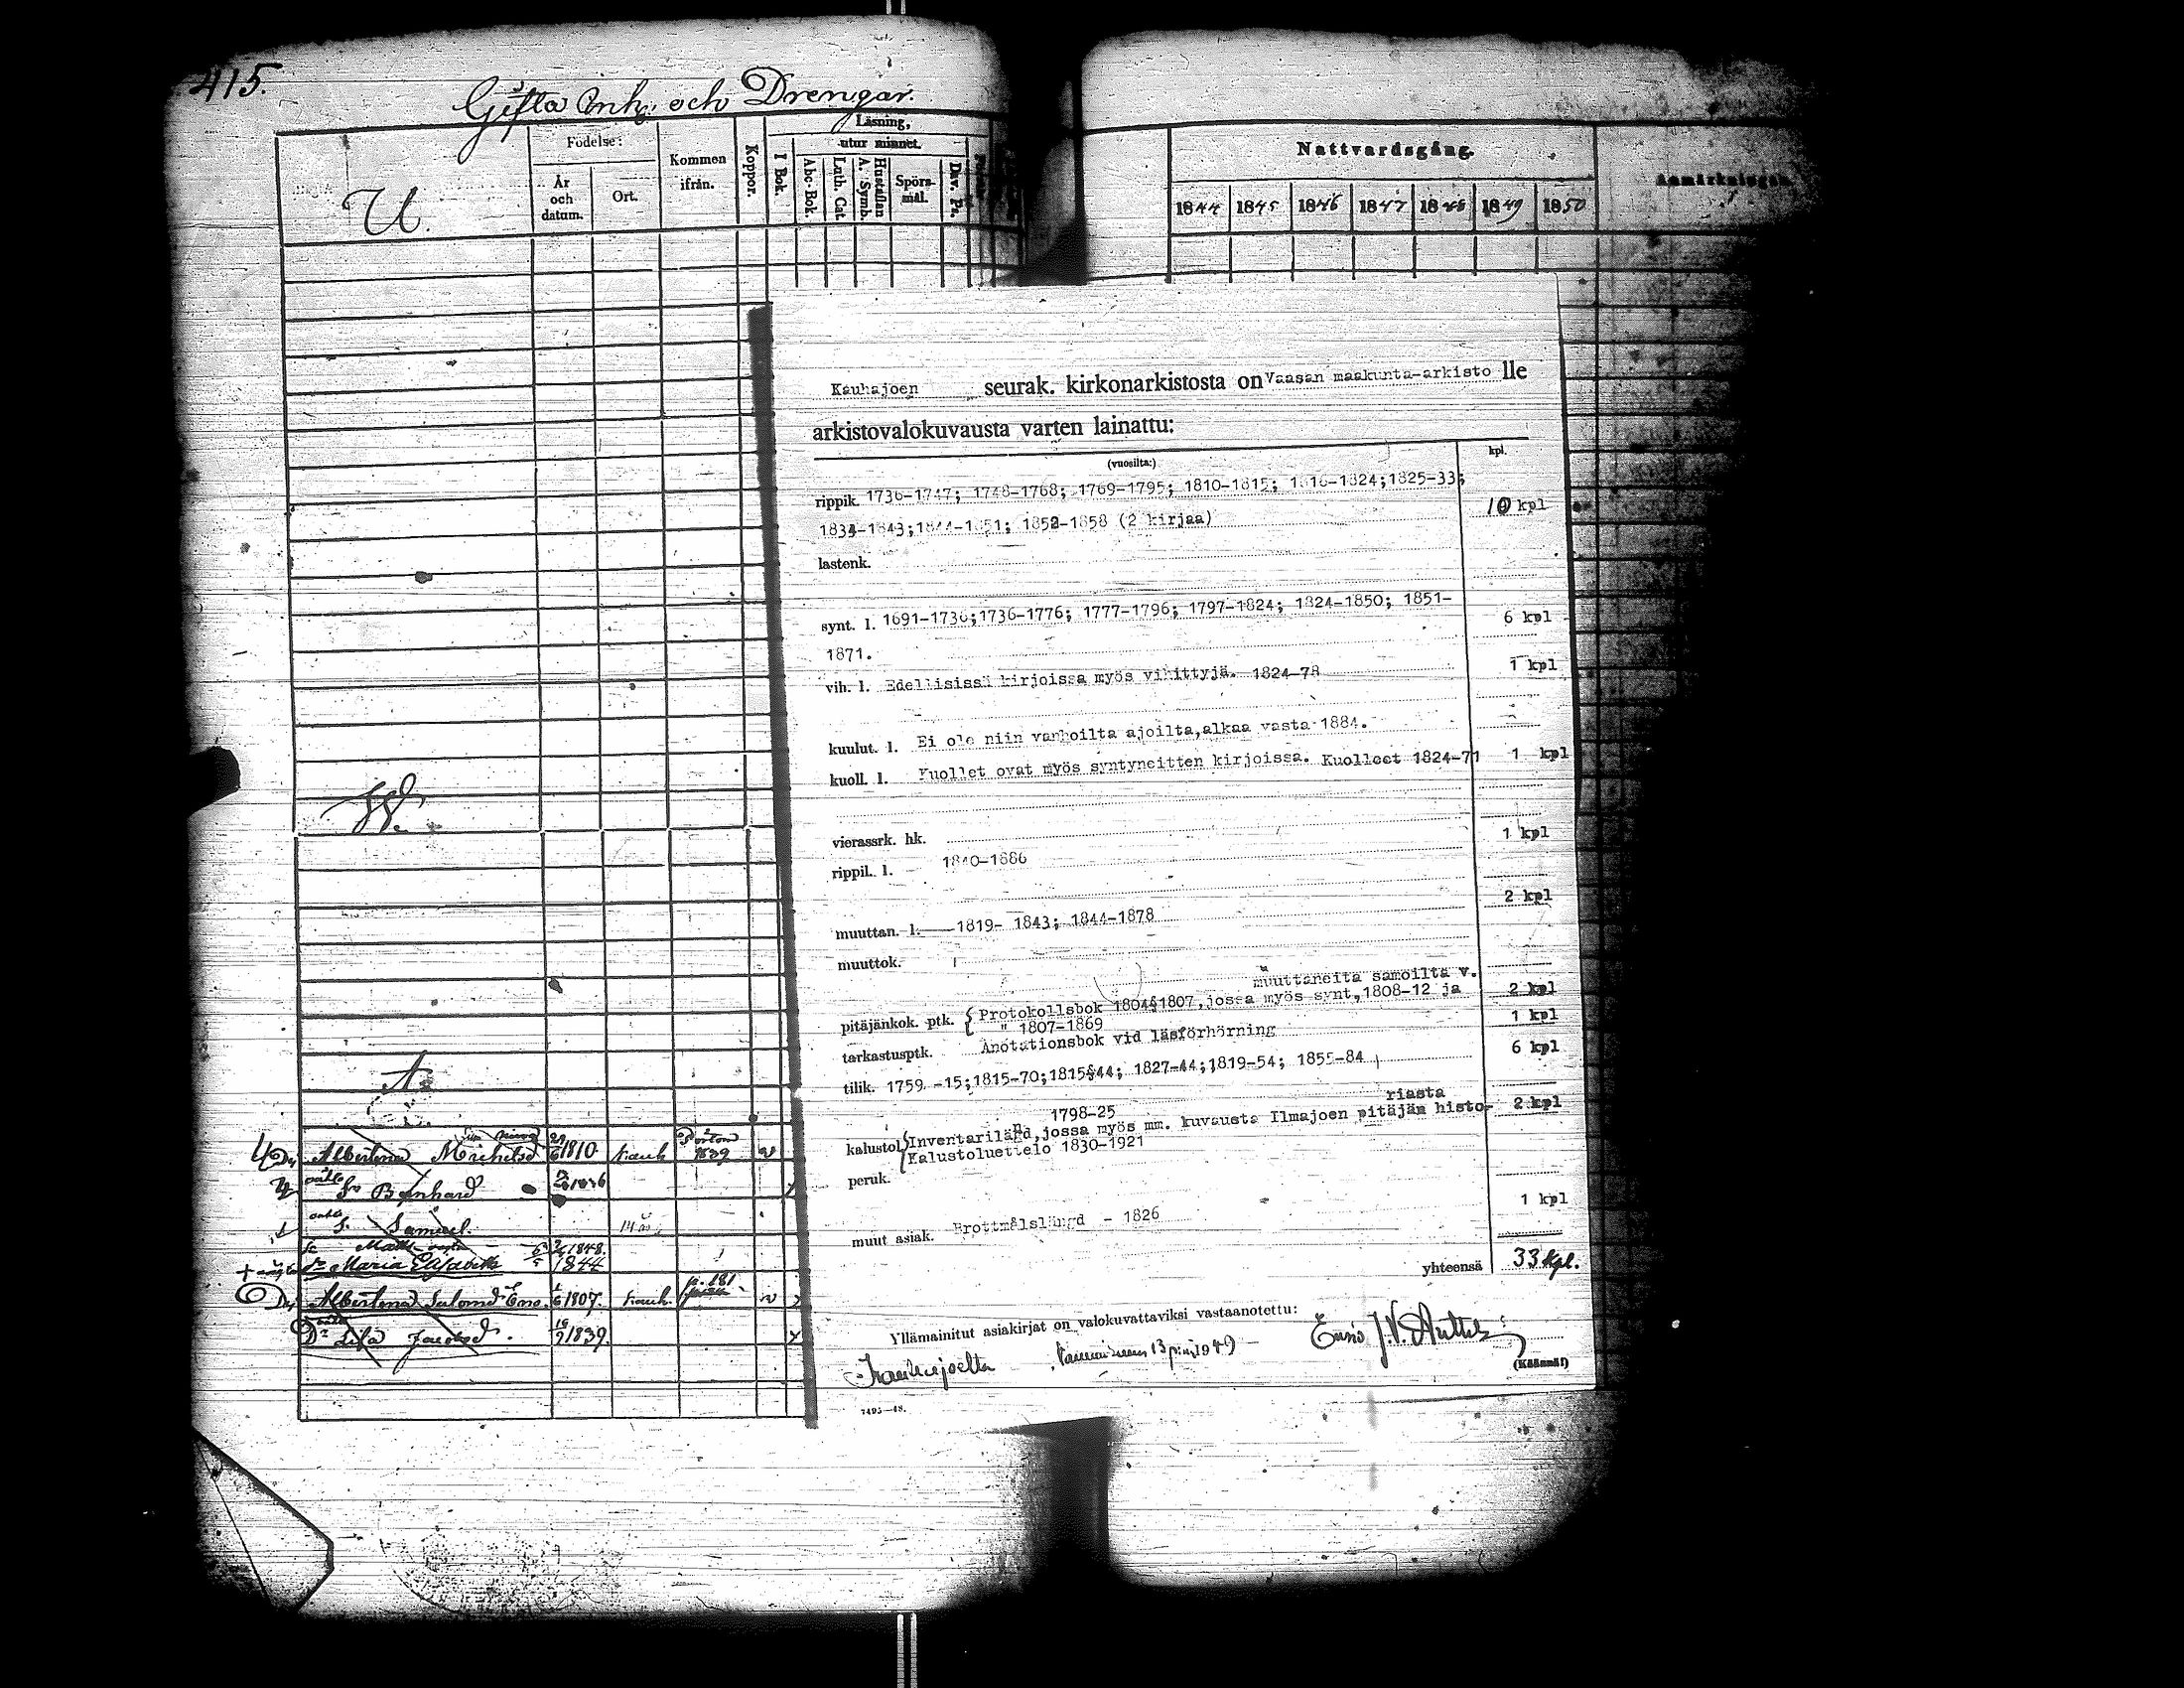 415.
Gifta Enk: och Drengar.
U.
Födelse:
År och datum.
Ort.
Kommen ifrån.
Koppor.
Läsning,
utur minnet.
I Bok.
Abc-Bok.
Luth. Cat.
Hustaflan
A. Symb.
Spörsmål.
Dav. Ps.
Nattvardsgång.
Anmärkningar.
1844 1845 1846 1847 1848 1849 1850
Kauhajoen seurak. kirkonarkistosta on Vaasan maakunta-arkisto lle
arkistovalokuvausta varten lainattu:
(vuosilta:) kpl.
rippik. 1736-1747; 1748-1768; 1769-1795; 1810-1815; 1816-1824;1825-33;
1834-1843;1844-1851; 1852-1858 (2 kirjaa) 10 kpl
lastenk.
synt. l. 1691-1736;1736-1776; 1777-1796; 1797-1824; 1824-1850; 1851-
1871. 6 kpl
vih. l. Edellisissä kirjoissa myös vihittyjä. 1824-78 1 kpl
kuulut. l. Ei ole niin vanhoilta ajoilta,alkaa vasta 1884.
kuoll. l. Kuollet ovat myös syntyneitten kirjoissa. Kuolleet 1824-71 1 kpl
vierassrk. hk.
rippil. l. 1840-1886 1 kpl
muuttan. l. 1819- 1843; 1844-1878 2 kpl
muuttok.
muuttaneita samoilta v.
pitäjänkok. ptk. { Protokollsbok 1804§1807,jossa myös synt,1808-12 ja 2 kpl
" 1807-1869
tarkastusptk. Anotationsbok vid läsförhörning 1 kpl
tilik. 1759 -15;1815-70;1815§44; 1827-44;1819-54; 1855-84 6 kpl
1798-25 riasta
kalustol { Inventarilängd,jossa myös mm. kuvausta Ilmajoen pitäjän histo- 2 kpl
Kalustoluettelo 1830-1921
peruk.
muut asiak. Brottmålslängd - 1826 1 kpl
yhteensä 33 kpl.
Yllämainitut asiakirjat on valokuvattaviksi vastaanotettu:
Kauhajoella
13 1949
(Käännä!)
7495—48.
W.
Albertina Michelsd 1810 Kauh 1839
Bernhard
S. Samuel.
1848.
Maria Elisabeth 1844
Albertina Salomd 1807. Kauh. p. 181
Lisa Jacobsd. 1839.